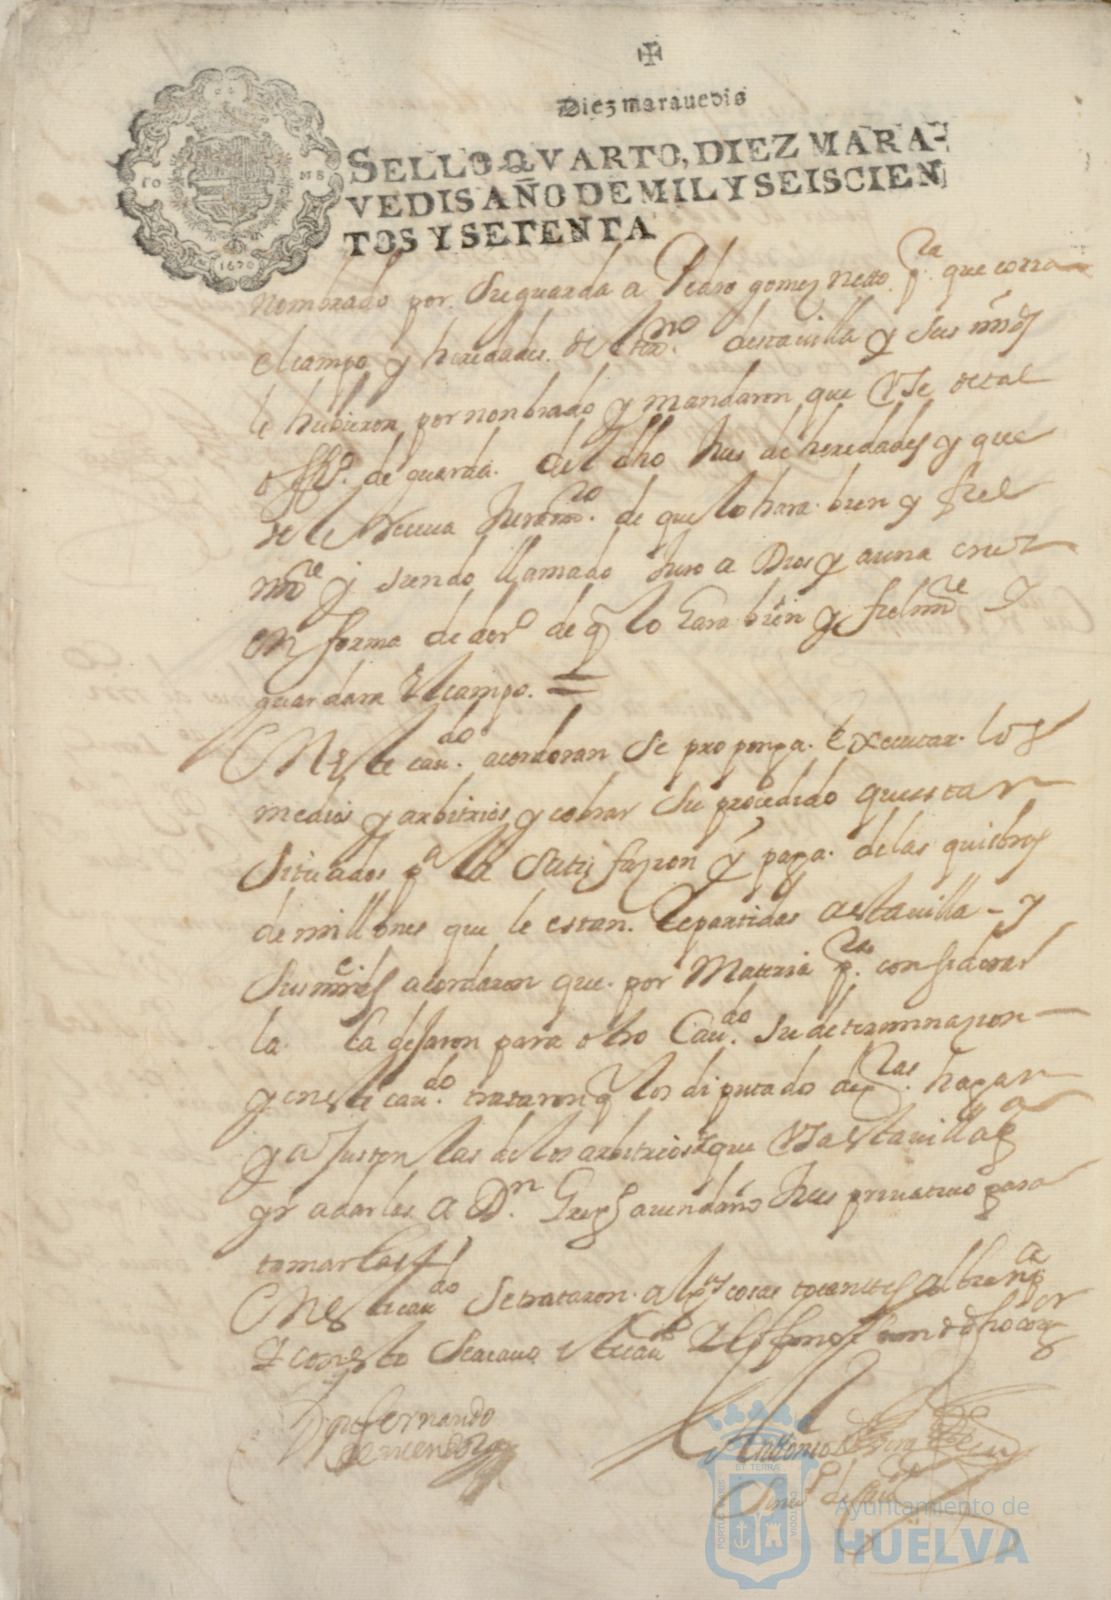 Diez maravedis
SELLO QVARTO, DIEZ MARA-
VEDIS AÑO DE MIL Y SEISCIEN
TOS Y SETENTA
1670
nombrado por su guarda a Pedro gomez netto pª que corra
el campo y heredades del terno destauilla y sus mrds
le hubieron por nonbrado y mandaron que Vse de tal
offº de guarda del dho Jues de heredades y que
se le Receua Juramto de que lo hara bien y fiel
mte y siendo llamado Juro a Dios y auna cruz
en forma de derº de q lo hara bien y fielmte y
guardara el campo =
En este caudo acordaron se proponga executar los
medios y arbitrios y cobrar su procedido que estan
situados pª la satisfazion y paga de las quiebras
de millones que le estan Repartidas a esta uilla - y
sus mrcds acordaron que por Materia pª considerar
la la dejaron para otro Caudo su determinazion
y en este caudo trataron q los diputado de hagan
y ajusten las de los arbitrios que Vsa esta uilla
yr a darlas a Dn auendaño Jues priuatiuo para
tomarlas
En este caudo se trataron cosas tocantes
Y con esto se acauo este caudo
fernando
de mendoza
Antonio
Ayuntamiento de
HUELVA